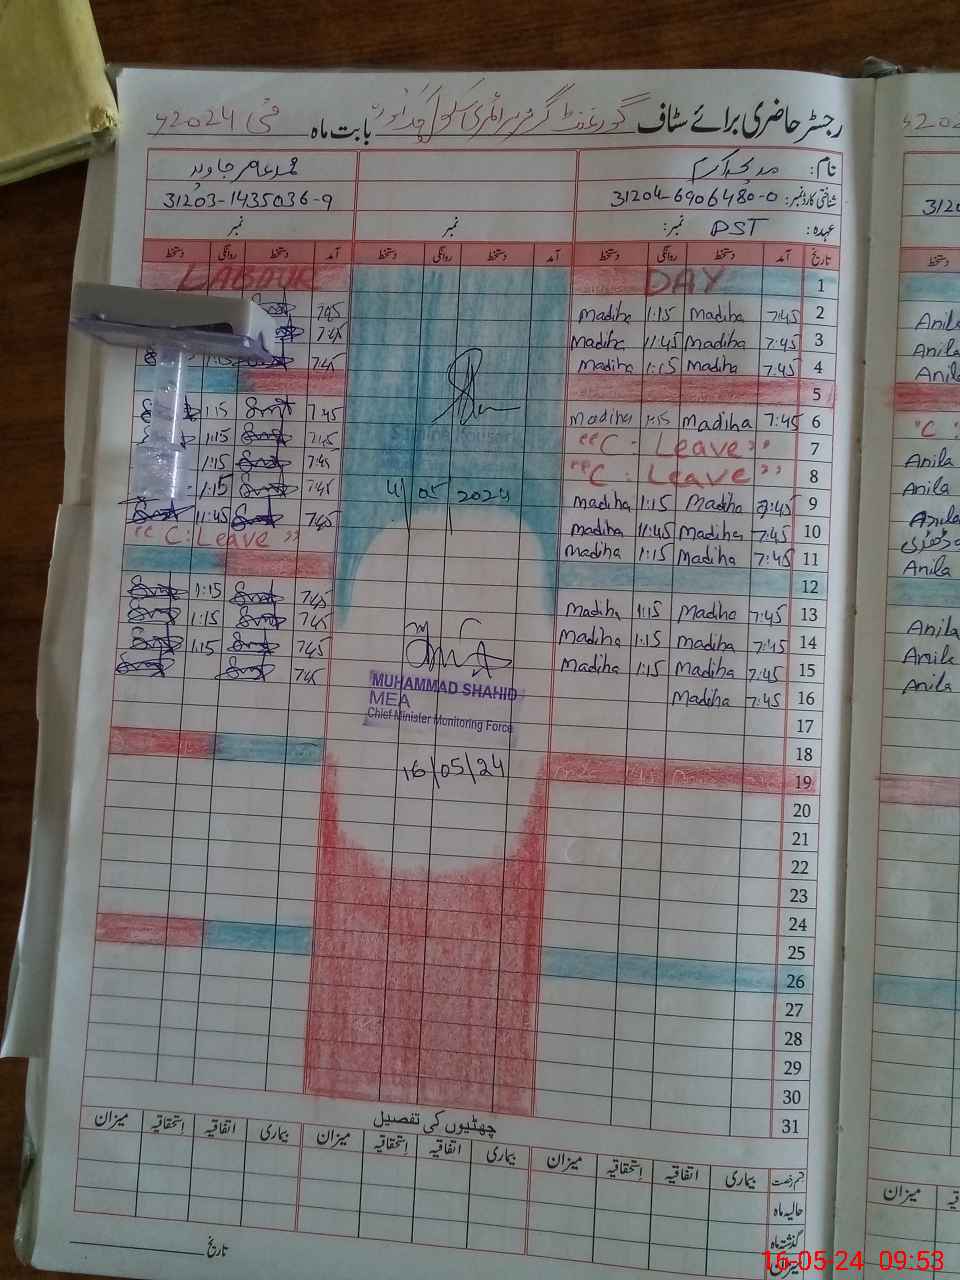 رجسٹر حاضری برائے سٹاف گورنمنٹ گرلز پرائمری سکول بابت ماہ مئی 2024ء
نام: مدیحہ اکرم
شناختی کارڈ نمبر: 31204-6906480-0 31203-1435036-9
عہدہ: PST نمبر: نمبر نمبر
تاریخ آمد دستخط روانگی دستخط آمد دستخط روانگی دستخط آمد دستخط روانگی دستخط
1 DAY LABOUR
2 7:45 Madiha 1:15 Madiha 7:45
3 7:45 Madiha 11:45 Madiha 7:45
4 7:45 Madiha 1:15 Madiha 7:45 1:15
5
6 7:45 Madiha 1:15 Madiha 7:45 1:15
7 "C: Leave" 7:45 1:15
8 "C: Leave" 7:45 1:15
9 7:45 Madiha 1:15 Madiha 7:45 1:15
4/05/2024
10 7:45 Madiha 11:45 Madiha 7:45 11:45
11 7:45 Madiha 1:15 Madiha "C: Leave"
12
13 7:45 Madiha 1:15 Madiha 7:45 1:15
14 7:45 Madiha 1:15 Madiha 7:45 1:15
15 7:45 Madiha 1:15 Madiha 7:45 1:15
16 7:45 Madiha 7:45
MUHAMMAD SHAHID
MEA
Chief Minister Monitoring Force
16/05/24
17
18
19
20
21
22
23
24
25
26
27
28
29
30
31
چھٹیوں کی تفصیل
قسم رخصت بیماری اتفاقیہ استحقاقیہ میزان بیماری اتفاقیہ استحقاقیہ میزان بیماری اتفاقیہ استحقاقیہ میزان
حالیہ ماہ
گذشتہ ماہ
میزان
تاریخ
3120
دستخط
Anila
Anila
Anila
"C:
Anila
Anila
Anila
Anila
Anila
Anila
Anila
میزان
16-05-24 09:53